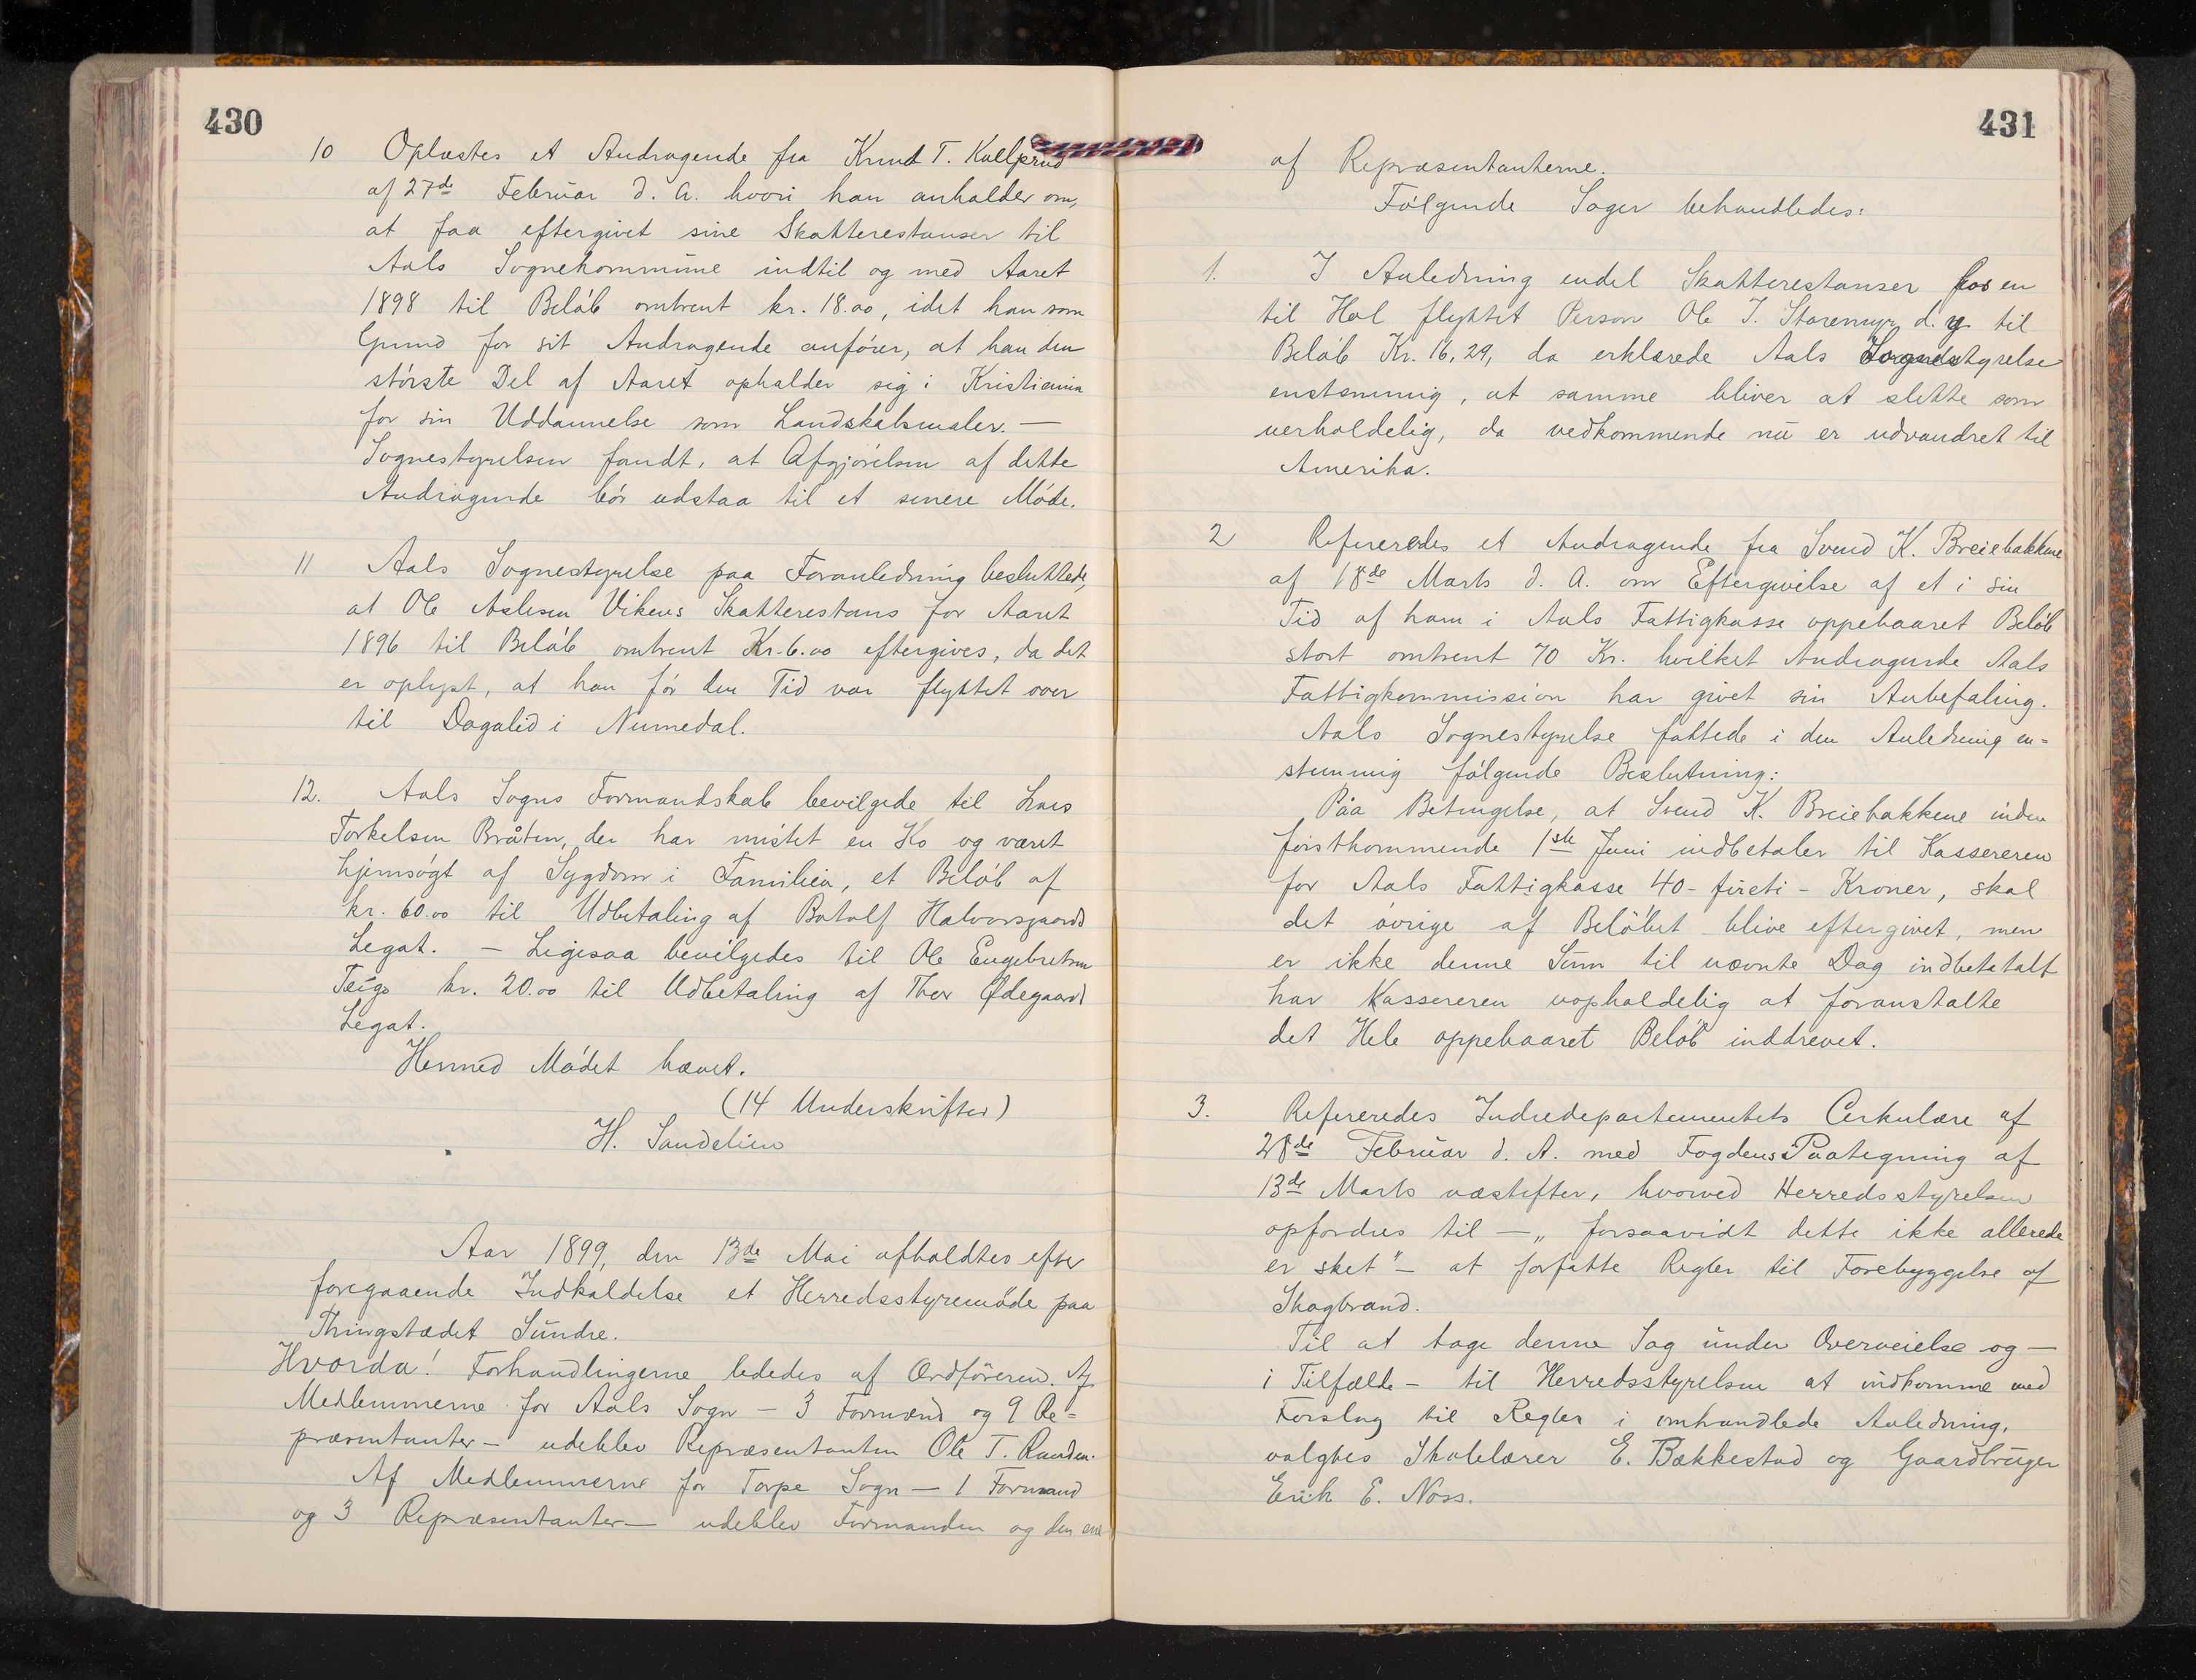 430
10 Oplæstes et Andragende fra Knud T.
af 27de Februar d. A. hvori han anholder om,
at faa eftergivet sine Skatterestanser til
Aals Sognekommune indtil og med Aaret
1898 til Beløb omtrent kr. 18.00, idet han som
Grund for sit Andragende anfører, at han den
største Del af Aaret opholder sig i Kristiania
for sin Uddannelse som Landskabsmaler. —
Sognestyrelsen fandt, at Afgjørelsen af dette
Andragende bør udstaa til et senere Møde.
11 Aals Sognestyrelse paa Foranledning besluttede,
at Ole Aslesen Vikens Skatterestans for Aaret
1896 til Beløb omtrent Kr. 6.00 eftergives, da det
er oplyst, at han før den Tid var flyttet over
til Dagalid i Numedal.
12. Aals Sogns Formandskab bevilgede til Lars
Torkelsen Bråten, der har mistet en Ko og været
hjemsøgt af Sygdom i Familien, et Beløb af
kr. 60.00 til Udbetaling af Botolf Halvorsgaards
Legat. — Ligesaa bevilgedes til Ole Engebretsen
Teigo kr. 20.00 til Udbetaling af Thor Ødegaards
Legat.
Hermed Mødet hævet.
(14 Underskrifter)
H. Sandelien
Aar 1899, den 13de Mai afholdtes efter
foregaaende Indkaldelse et Herredsstyremøde paa
Thingstedet Sundre.
Hvorda! Forhandlingerne lededes af Ordføreren. Af
Medlemmerne for Aals Sogn — 3 Formænd og 9 Re-
præsentanter — udeblev Repræsentanten Ole T. Randen.
Af Medlemmerne for Torpe Sogn — 1 Formand
og 3 Repræsentanter — udeblev Formanden og den ene
431
af Repræsentanterne.
Følgende Sager behandledes:
1. I Anledning endel Skatterestanser hos en
til Hol flyttet Person Ole J. Storemyr d. y. til
Beløb Kr. 16,29, da erklærede Aals Sognestyrelse
enstemmig, at samme bliver at slette som
uerholdelig, da vedkommende nu er udvandret til
Amerika.
2 Refereredes et Andragende fra Svend K. Breiebakkene
af 18de Marts d. A. om Eftergivelse af et i sin
Tid af ham i Aals Fattigkasse oppebaaret Beløb
stort omtrent 70 Kr. hvilket Andragende Aals
Fattigkommission har givet sin Anbefaling.
Aals Sognestyrelse fattede i den Anledning en=
stemmig følgende Beslutning:
Paa Betingelse, at Svend K. Breiebakkene inden
førstkommende 1ste Juni indbetaler til Kassereren
for Aals Fattigkasse 40 - fireti - Kroner, skal
det øvrige af Beløbet blive eftergivet, men
er ikke denne Sum til nævnte Dag indbetatalt
har Kassereren uopholdelig at foranstalte
det Hele oppebaaret Beløb inddrevet.
3. Refereredes Indredepartementets Cirkulære af
28de Februar d. A. med Fogdens Paategning af
13de Marts næstefter, hvorved Herredsstyrelsen
opfordres til — „ forsaavidt dette ikke allerede
er sket" — at forfatte Regler til Forebyggelse af
Skogbrand.
Til at tage denne Sag under Overveielse og —
i Tilfælde — til Herredsstyrelsen at indkomme med
Forslag til Regler i omhandlede Anledning,
valgtes Skolelærer E. Bækkestad og Gaardbruger
Erik E. Noss.